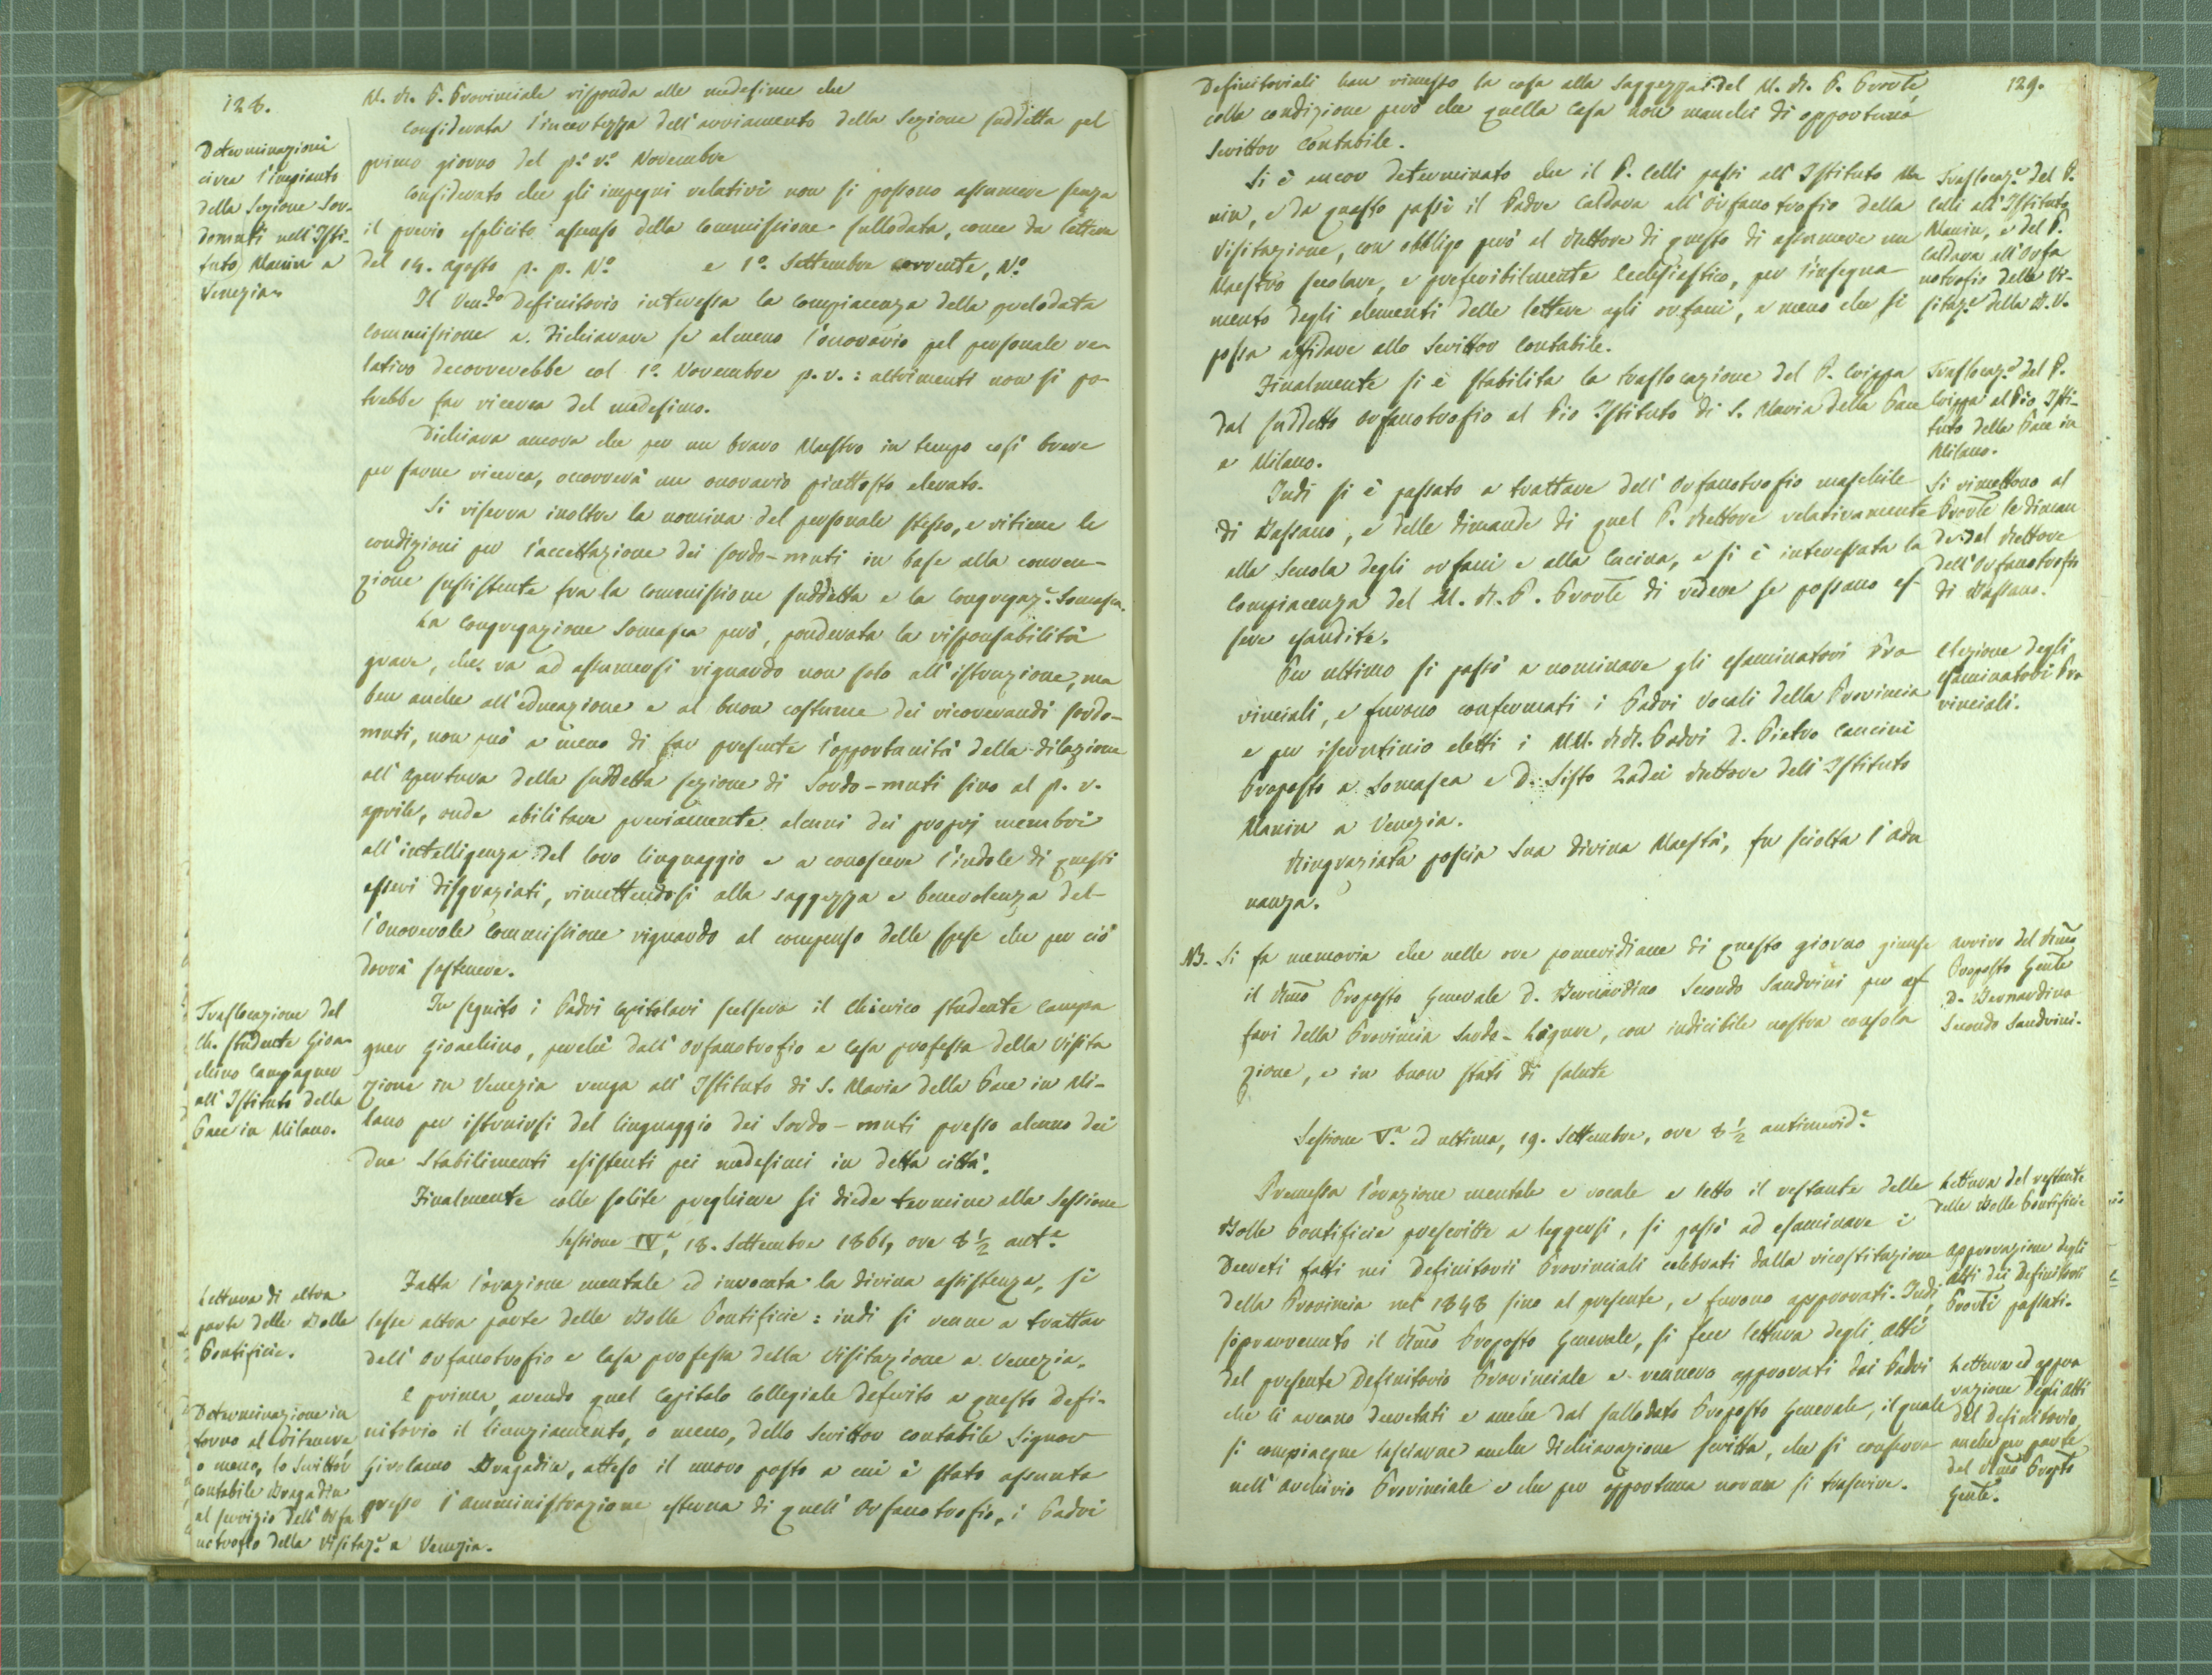 128.
M. R. P. Provinciale risponda alle medesime che
Considerata l'incertezza dell'avviamento della Sezione suddetta pel
primo giorno del p.o v.o Novembre
Considerato che gli impegni relativi non si possono assumere senza
il previo esplicito assenso della Commissione sullodata, come da lettere
del 14. Agosto p. p. N.o e 1.o Settembre corrente, N.o
Il Ven.do Definitorio interessa la compiacenza della prelodata
Commissione a dichiarare se almeno l'onorario pel personale re-
lativo decorrerebbe col 1.o Novembre p. v.: altrimenti non si po-
trebbe far ricerca del medesimo.
Dichiara ancora che per un bravo Maestro in tempo così breve
per farne ricerca, occorrerà un onorario piuttosto elevato.
Si riserva inoltre la nomina del personale stesso, e ritiene le
condizioni per l'accettazione dei sordo-muti in base alla conven-
zione sussistente fra la Commissione suddetta e la Congregaz.e Somasca.
La Congregazione Somasca però, ponderata la risponsabilità
grave, che va ad assumersi riguardo non solo all'istruzione, ma
ben anche all'educazione e al buon costume dei ricoverandi sordo-
muti, non può a meno di far presente l'opportunità della dilazione
all'apertura della suddetta sezione di Sordo-muti sino al p. v.
aprile, onde abilitare previamente alcuni dei proprj membri
all'intelligenza del loro linguaggio e a conoscere l'indole di questi
esseri disgraziati, rimettendosi alla saggezza e benevolenza del-
l'onorevole Commissione riguardo al compenso delle spese che per ciò
dovrà sostenere.
In seguito i Padri Capitolari scelsero il Chierico studente Campa
gner Gioachino, perchè dall'Orfanotrofio e Casa professa della Visita
zione in Venezia venga all'Istituto di S. Maria della Pace in Mi-
lano per istruirsi del linguaggio dei Sordo-muti presso alcuno dei
due Stabilimenti esistenti pei medesimi in detta città.
Finalmente colle solite preghiere si diede termine alla Sessione
Sessione IV.a, 18. Settembre 1861, ore 8 1/2 ant.e
Fatta l'orazione mentale ed invocata la divina assistenza, si
lesse altra parte delle Bolle Pontificie: indi si venne a trattar
dell'Orfanotrofio e Casa professa della Visitazione a Venezia.
E prima, avendo quel Capitolo Collegiale deferito a questo Defi-
nitorio il licenziamento, o meno, dello Scrittor contabile Signor
Girolamo Bragadin, atteso il nuovo posto a cui è stato assunto
presso l'amministrazione esterna di quell'Orfanotrofio, i Padri
Determinazioni
circa l'impianto
della Sezione Sor-
domuti nell'Isti-
tuto Manin a
Venezia
Traslocazione del
Ch. studente Gioa-
chino Campagner
all'Istituto della
Pace in Milano.
Lettura di altra
parte delle Bolle
Pontificie.
Determinazione in
torno al ritenere
o meno, lo Scrittor
contabile Bragadin
al servizio dell'Orfa
notrofio della Visitaz.e a Venezia.
129.
Definitoriali han rimesso la cosa alla saggezza del M. R. P. Provle
colla condizione però che quella Casa non manchi di opportuno
Scrittor Contabile.
Si è ancor determinato che il P. Celli passi all'Istituto Ma
nin, e da questo passi il Padre Caldara all'Orfanotrofio della
Visitazione, con obbligo però al Rettore di questo di assumere un
Maestro secolare, e preferibilmente Ecclesiastico, per l'insegna-
mento degli elementi delle lettere agli orfani, a meno che si
possa affidare allo Scrittor Contabile.
Finalmente si è stabilita la traslocazione del P. Crippa
dal suddetto orfanotrofio al Pio Istituto di S. Maria della Pace
a Milano.
Indi si è passato a trattare dell'Orfanotrofio maschile
di Bassano, e delle dimande di quel P. Rettore relativamente
alla Scuola degli orfani e alla Cucina, e si è interessata la
Compiacenza del M. R. P. Provle di vedere se possano es-
sere esaudite.
Per ultimo si passò a nominare gli esaminatori Pro-
vinciali, e furono confermati i Padri Vocali della Provincia
e per iscrutinio eletti i MM. RR. Padri D. Pietro Cancini
Proposto a Somasca e D. Sisto Zadei Rettore dell'Istituto
Manin a Venezia.
Ringraziata poscia Sua Divina Maestà, fu sciolta l'adu
nanza.
NB. Si fa memoria che nelle ore pomeridiane di questo giorno giunse
il Rmo Proposto Generale D. Bernardino Secondo Sandrini per af
fari della Provincia Sardo-Ligure, con indicibile nostra consola
zione, e in buon stato di salute
Sessione V.a ed ultima, 19. Settembre, ore 8 1/2 antimerid.e
Premessa l'orazione mentale e vocale e letto il restante delle
Bolle Pontificie prescritte a leggersi, si passò ad esaminare i
Decreti fatti nei Definitorii Provinciali celebrati dalla ricostituzione
della Provincia nel 1848 sino al presente, e furono approvati. Indi,
sopravvenuto il Rmo Proposto Generale, si fece lettura degli Atti
del presente Definitorio Provinciale e vennero approvati dai Padri
che li aveano decretati e anche dal sullodato Proposto Generale, il quale
si compiacque lasciarne anche dichiarazione scritta, che si conserva
nell'archivio Provinciale e che per opportuna norma si trascrive.
Traslocaz.e del P.
Celli all'Istituto
Manin, e del P.
Caldara all'Orfa
notrofio della Vi-
sitaz.e della B. V.
Traslocaz.e del P.
Crippa al Pio Isti-
tuto della Pace in
Milano.
Si rimettono al
Provle le diman
de del Rettore
dell'Orfanotrofio
di Bassano.
Elezione degli
esaminatori Pro
vinciali.
Arrivo del Rmo
Proposto Genle
D. Bernardino
Secondo Sandrini.
Lettura del restante
delle Bolle Pontificie
Approvazione degli
Atti dei Definitorii
Provli passati.
Lettura ed appro
vazione degli Atti
del Definitorio,
anche per parte
del Rmo Propto
Genle.